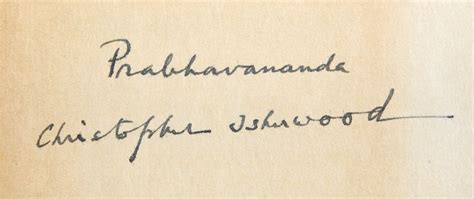 Prabhavananda
Christopher Isherwood